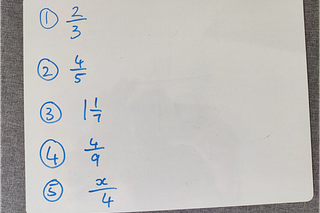 ① 2/3
② 4/5
③ 1 1/7
④ 4/9
⑤ x/4